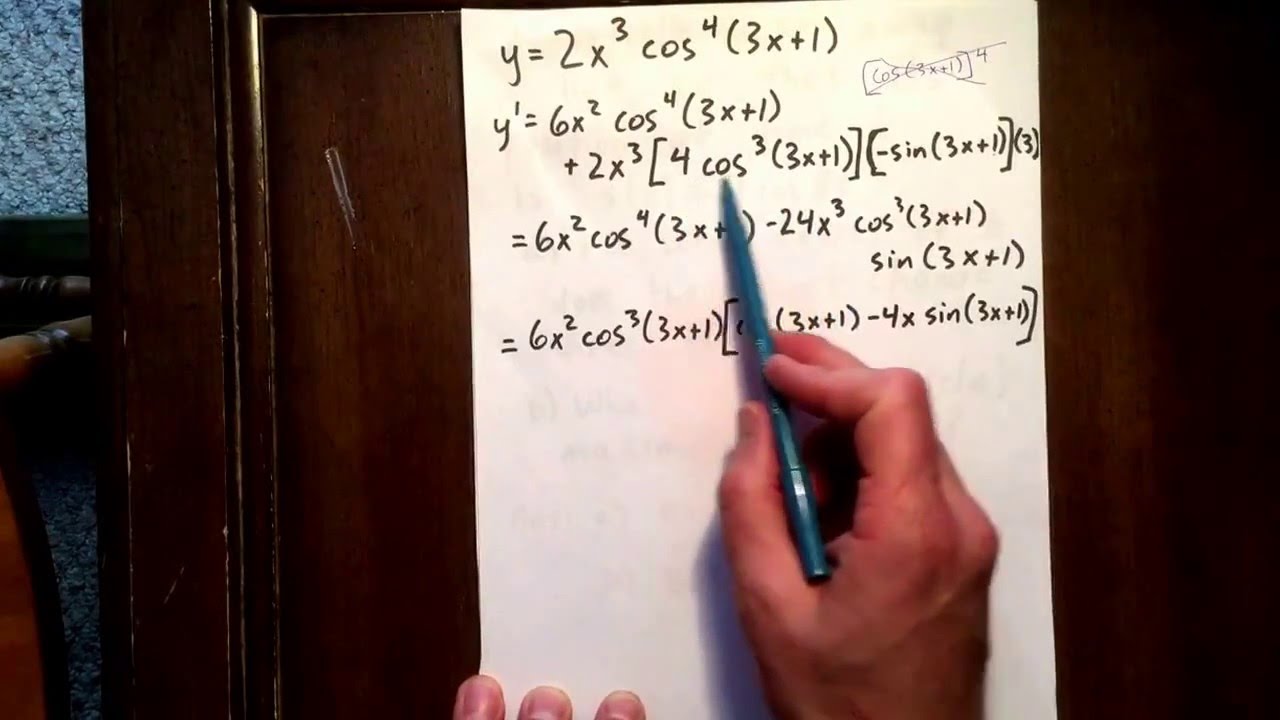 y = 2x³ cos⁴(3x+1)
[cos(3x+1)]⁴
y' = 6x² cos⁴(3x+1)
+ 2x³ [4 cos³(3x+1)][-sin(3x+1)](3)
= 6x² cos⁴(3x+1) - 24x³ cos³(3x+1)
sin(3x+1)
= 6x² cos³(3x+1)[ (3x+1) - 4x sin(3x+1)]